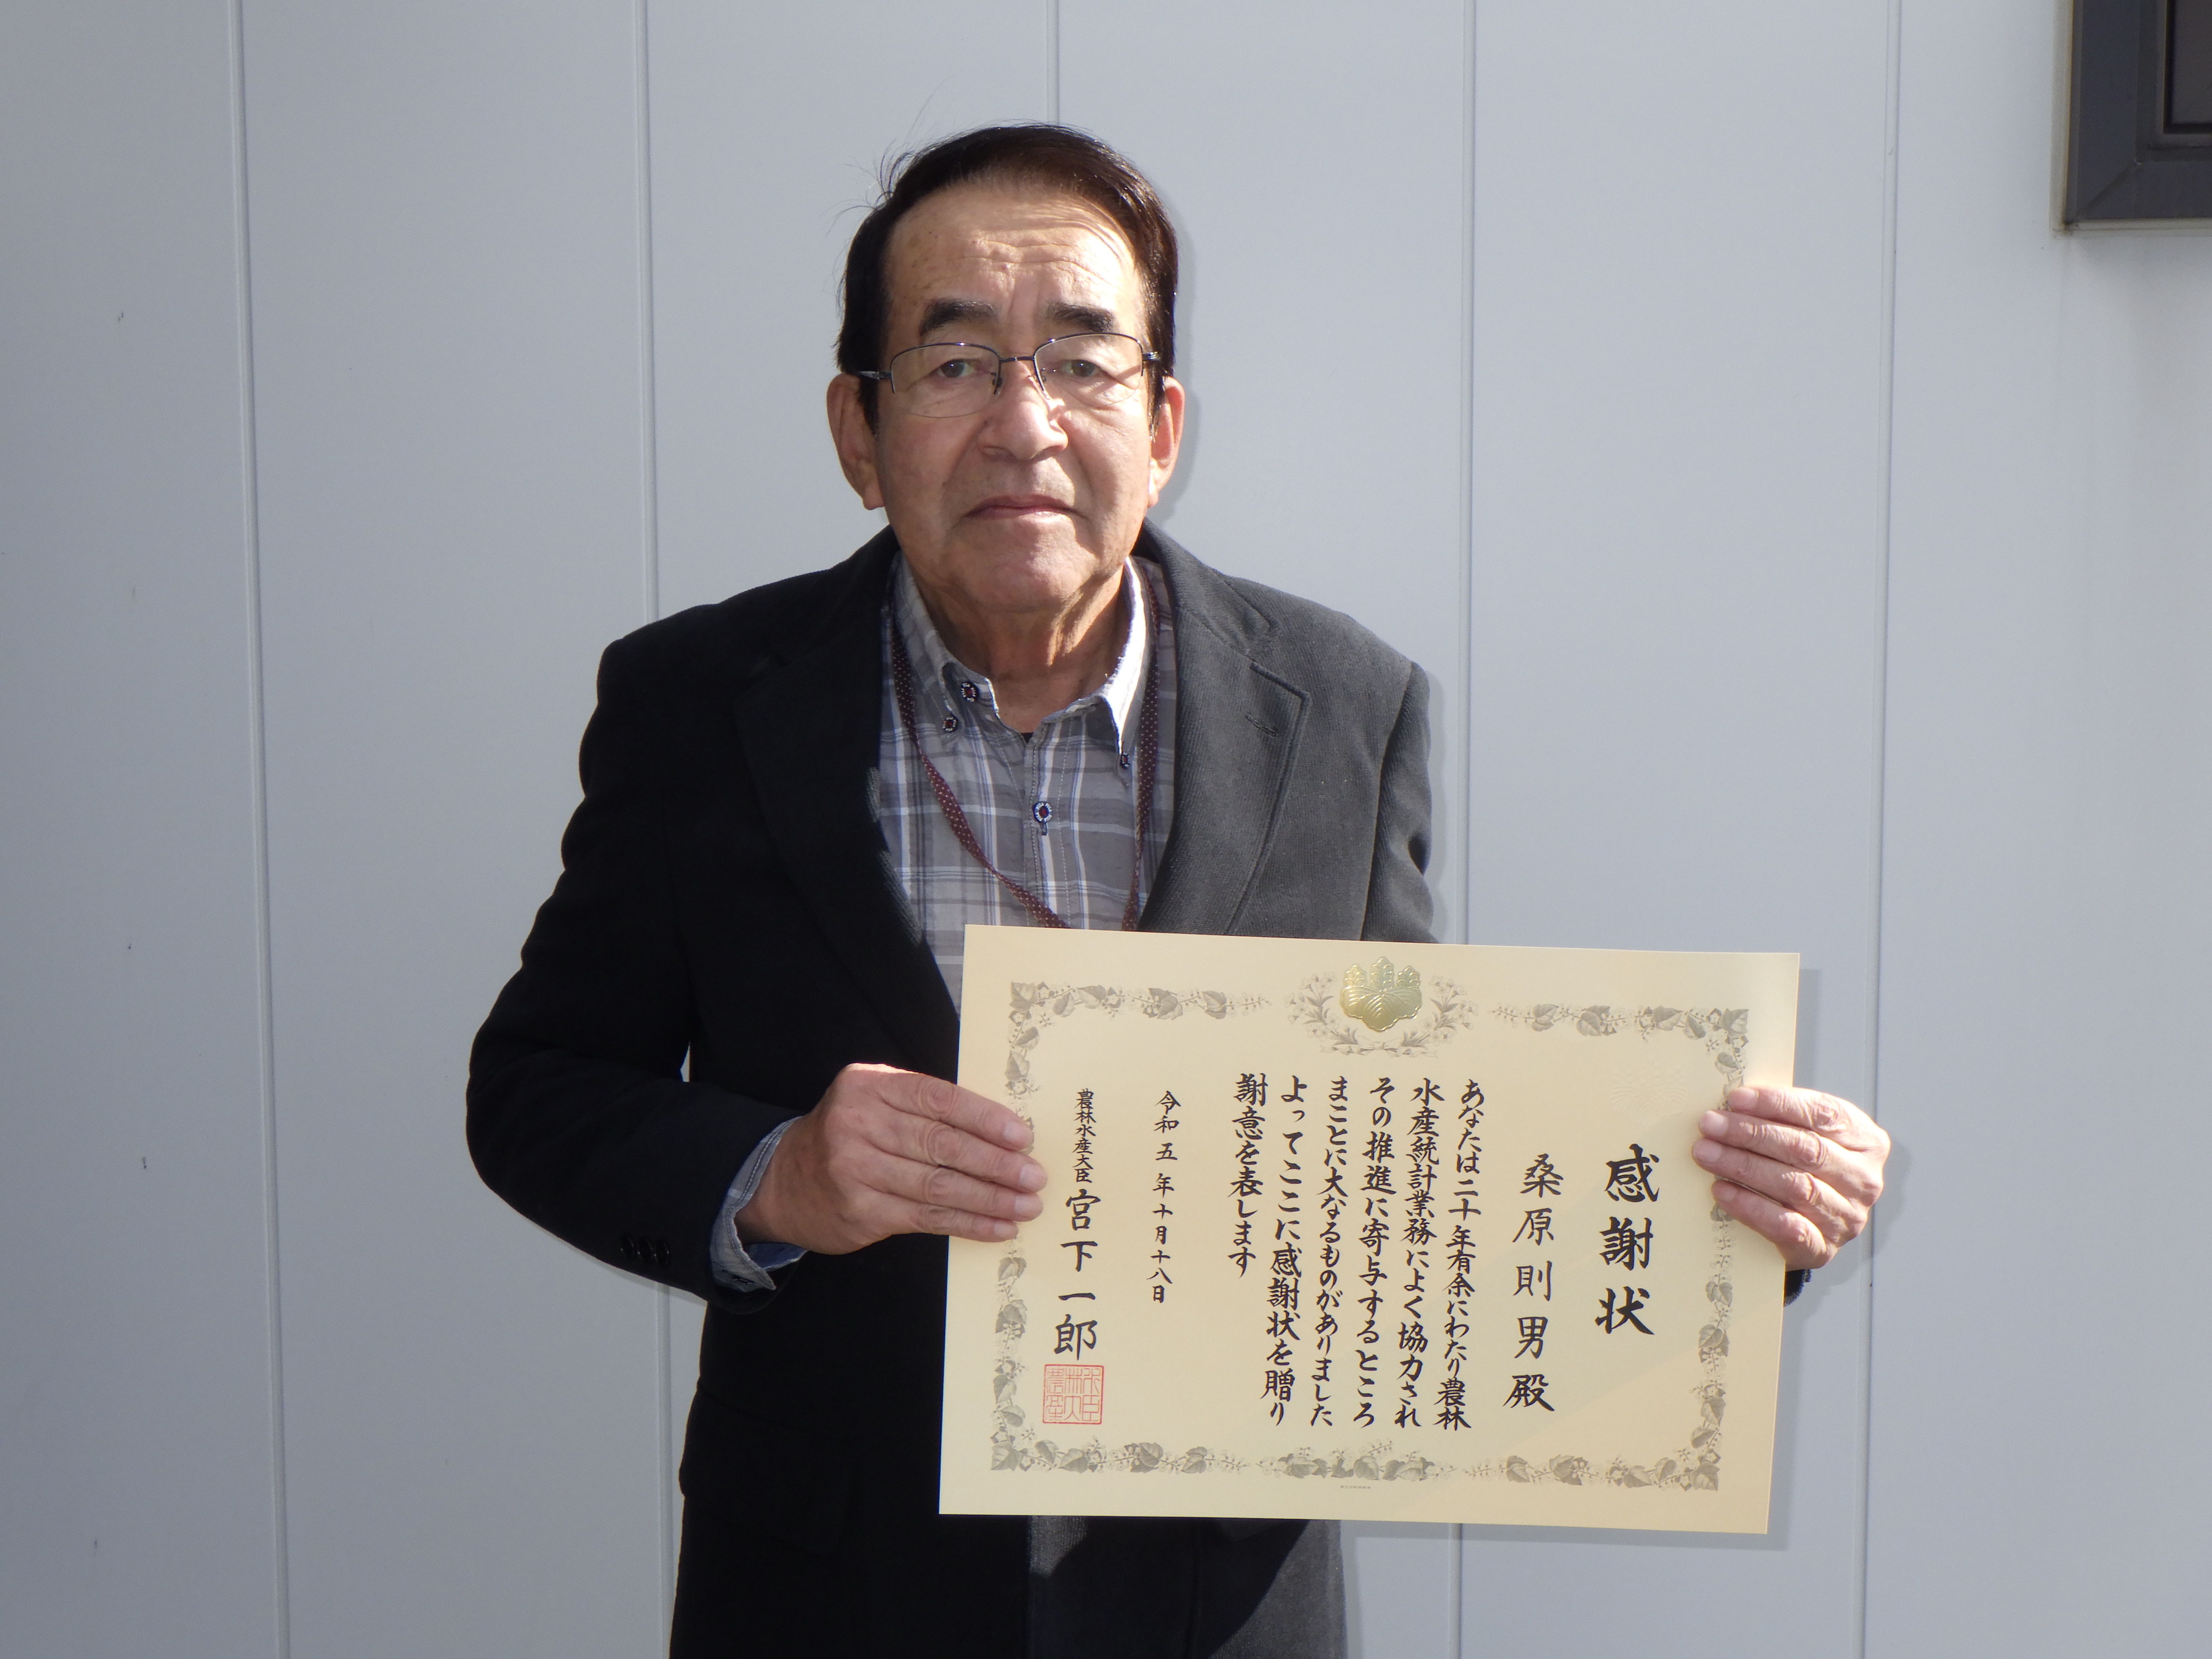 感謝状
桑原則男殿
あなたは二十年有余にわたり農林
水産統計業務によく協力され
その推進に寄与するところ
まことに大なるものがありました
よってここに感謝状を贈り
謝意を表します
令和五年十月十八日
農林水産大臣 宮下一郎